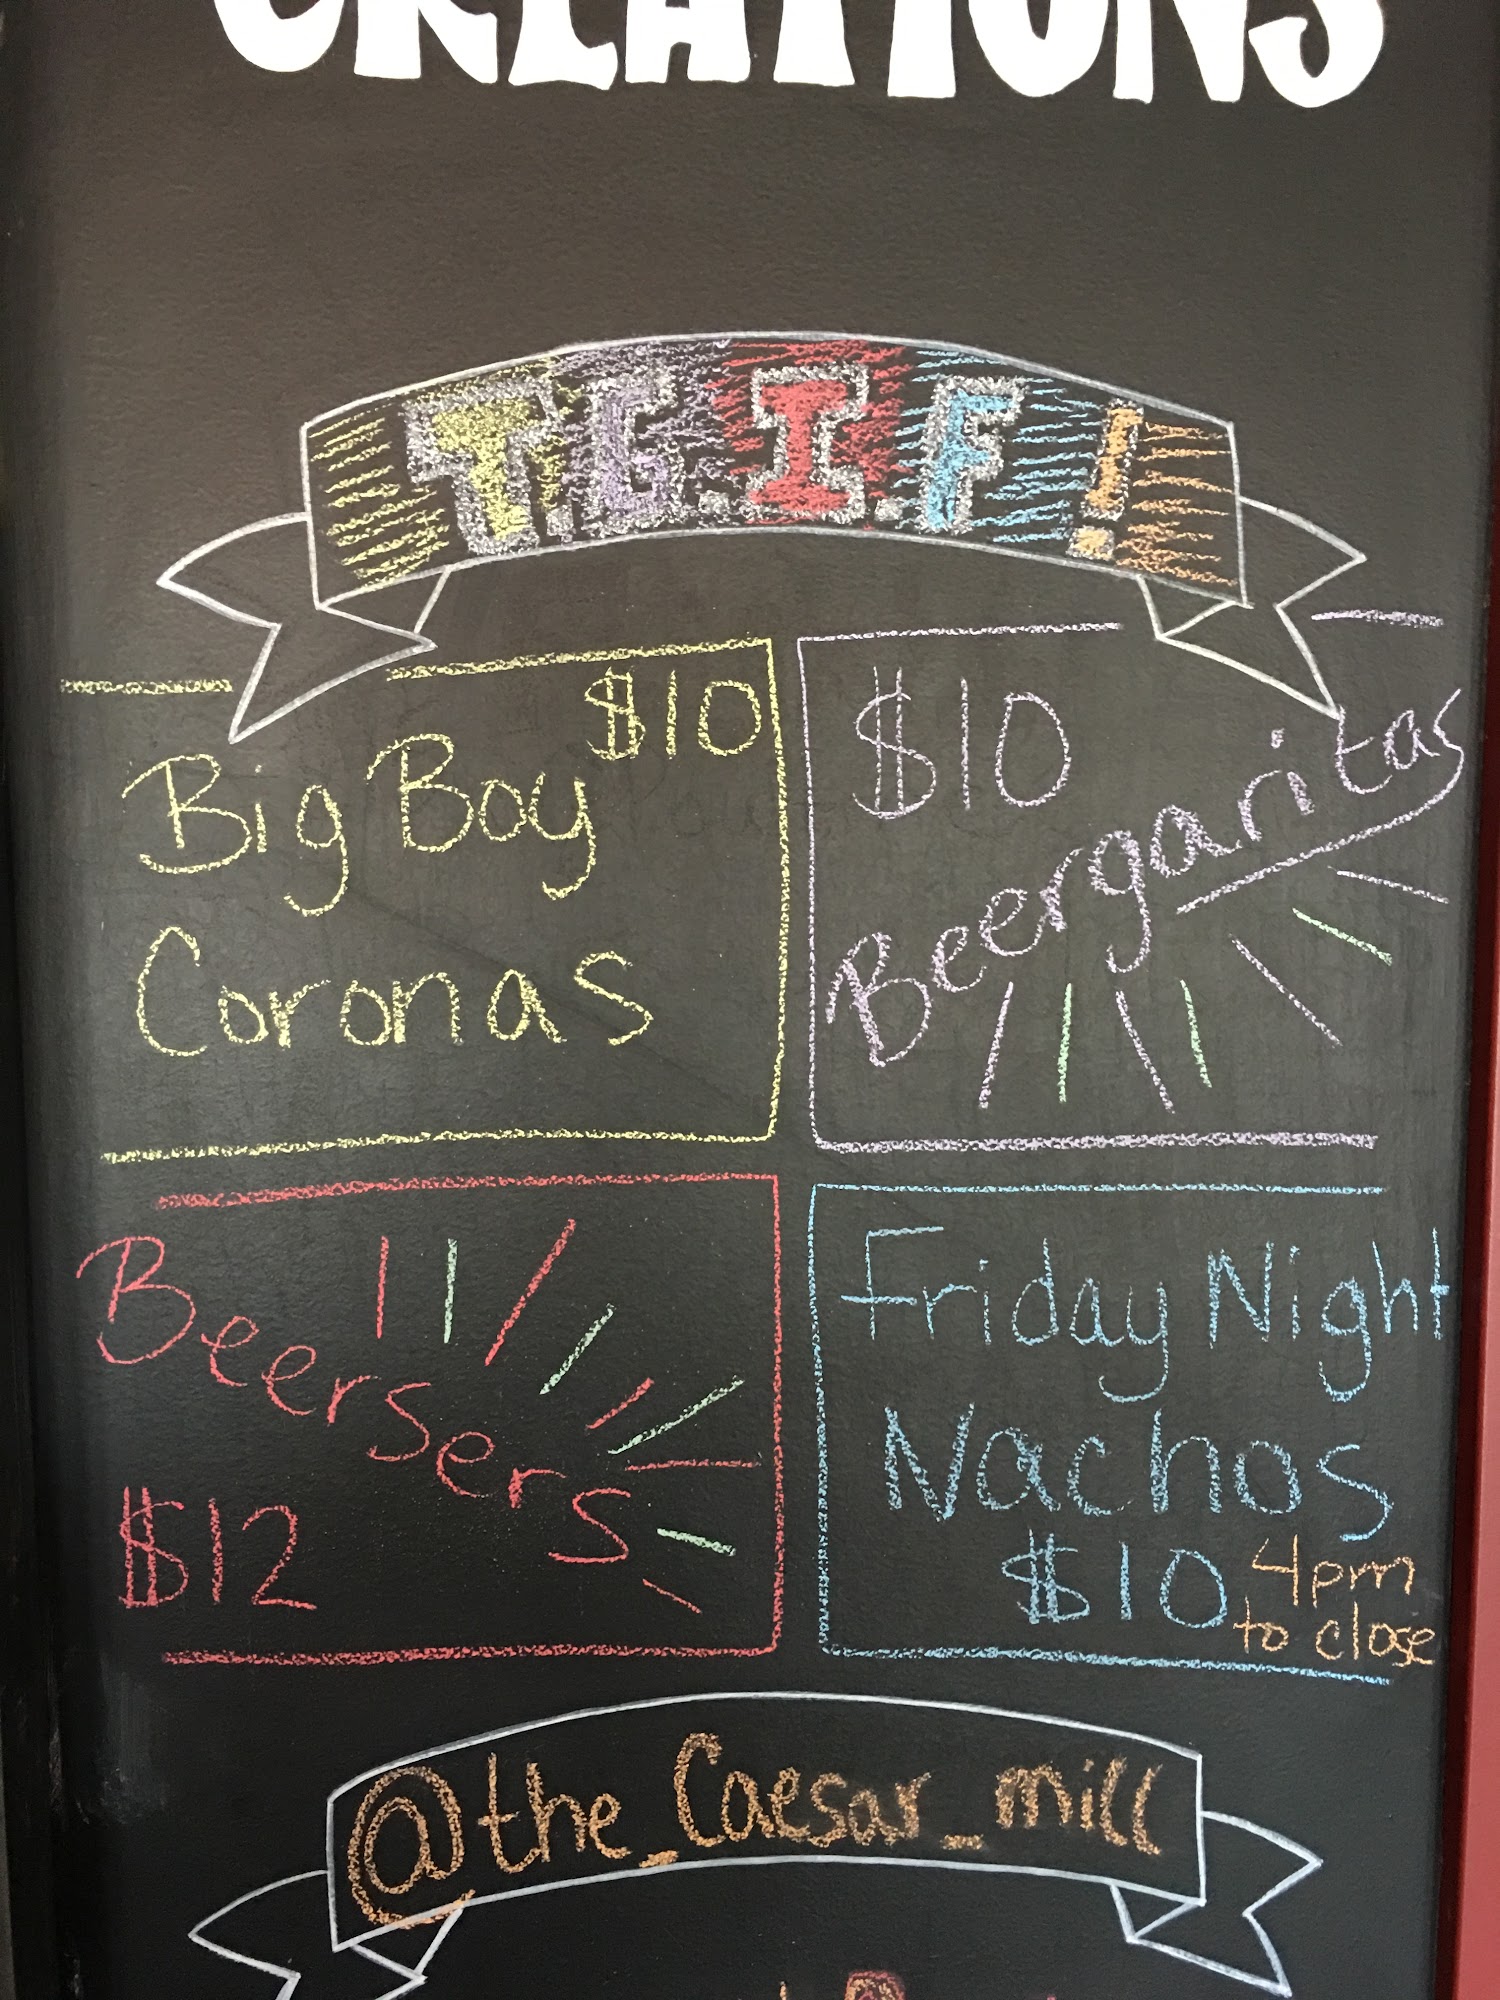 CREATIONS
T.G.I.F!
$10
Big Boy
Coronas
$10
Beergaritas
Beersers
$12
Friday Night
Nachos
$10 4pm
to close
@the_Caesar_mill